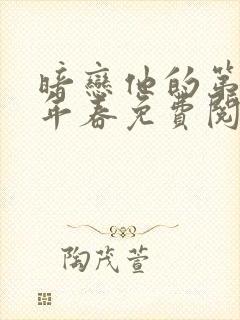 暗戀他的第
年春免費閱
陶茂萱